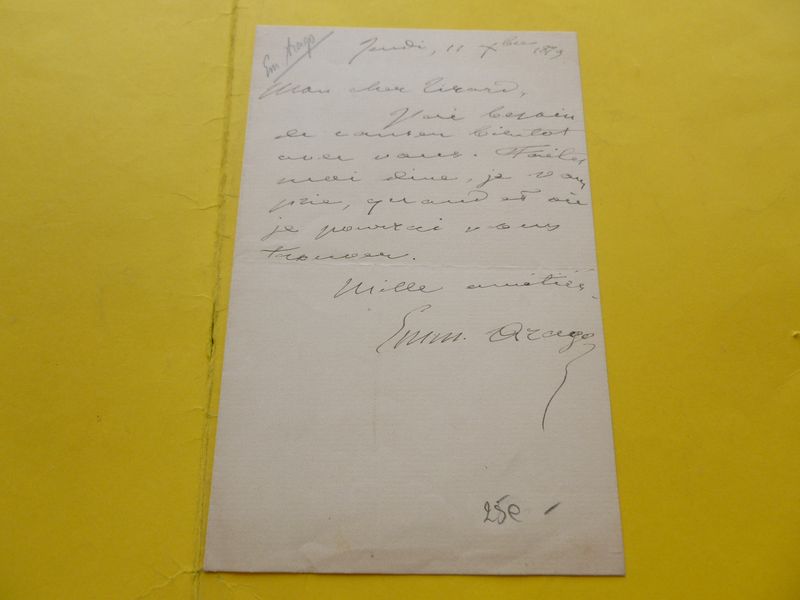 Em Arago
Jeudi, 11 Xbre 1879
Mon cher Tirard,
J'ai besoin
de causer bientôt
avec vous. Faites
moi dire, je vous
prie, quand et où
je pourrai vous
trouver.
Mille amitiés.
Emm. Arago
25e